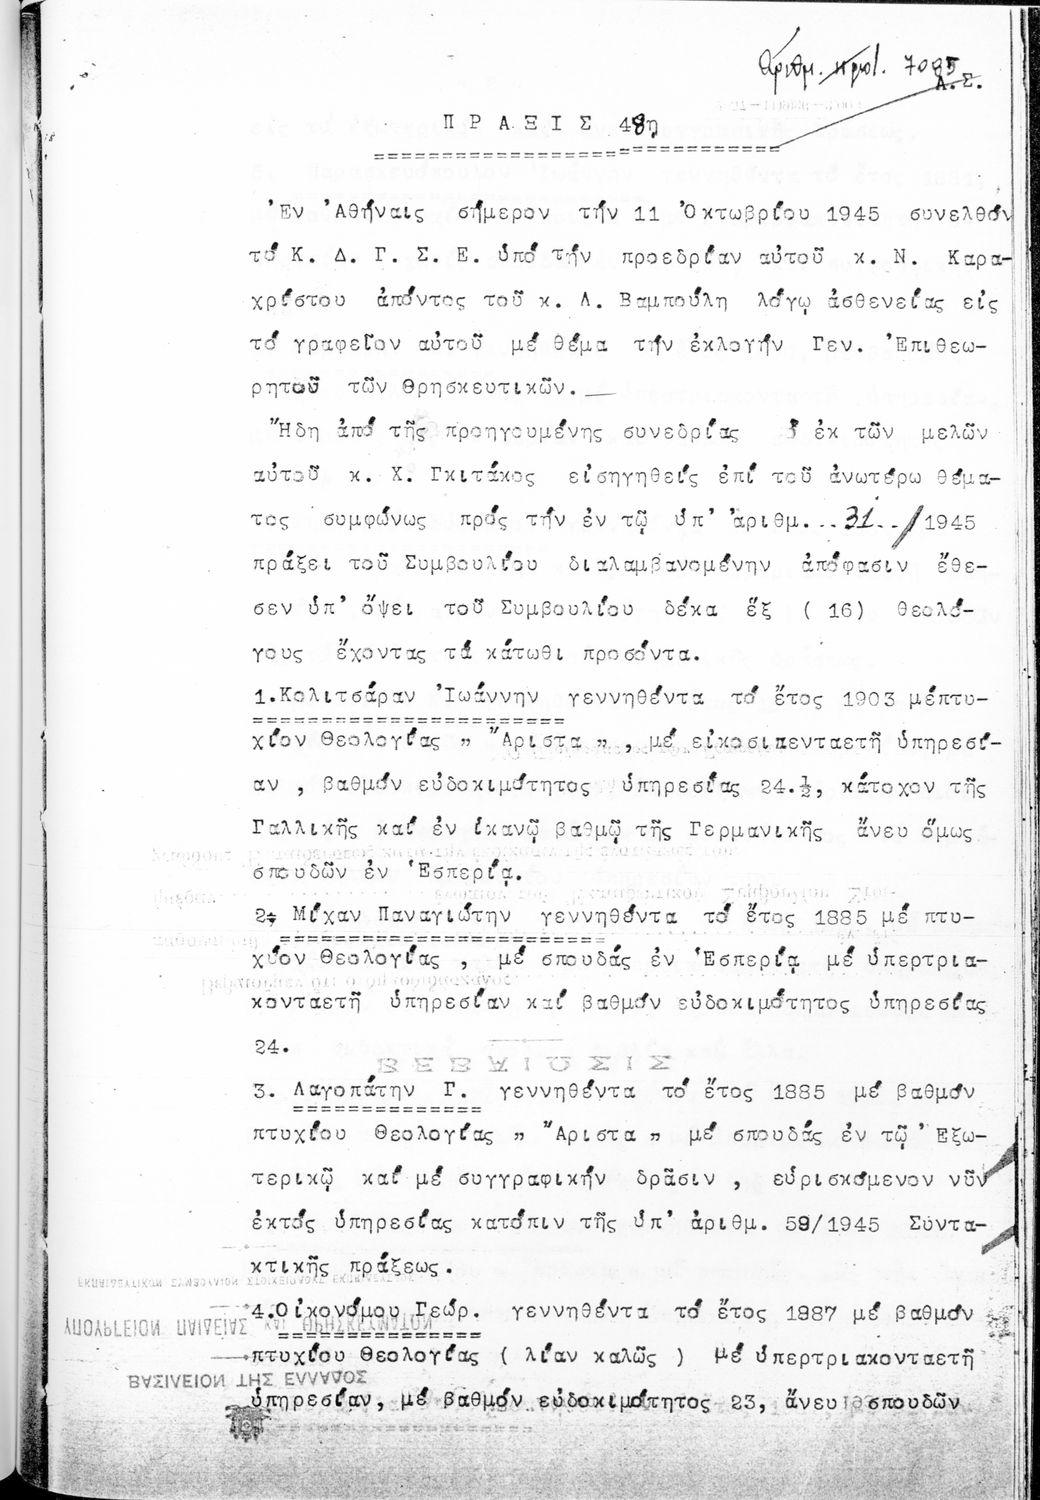 Ἀριθμ. πρωτ. 7085
Α.Σ.
Π Ρ Α Ξ Ι Σ 48η
Ἐν Ἀθήναις σήμερον τήν 11 Ὀκτωβρίου 1945 συνελθόν
τό Κ. Δ. Γ. Σ. Ε. ὑπό τήν προεδρίαν αὐτοῦ κ. Ν. Καρα-
χρίστου ἀπόντος τοῦ κ. Λ. Βαμπούλη λόγῳ ἀσθενείας εἰς
τό γραφεῖον αὐτοῦ μέ θέμα τήν ἐκλογήν Γεν. Ἐπιθεω-
ρητοῦ τῶν Θρησκευτικῶν.
Ἤδη ἀπό τῆς προηγουμένης συνεδρίας ὁ ἐκ τῶν μελῶν
αὐτοῦ κ. Χ. Γκιτάκος εἰσηγηθείς ἐπί τοῦ ἀνωτέρω θέμα-
τος συμφώνως πρός τήν ἐν τῷ ὑπ' ἀριθμ...31../1945
πράξει τοῦ Συμβουλίου διαλαμβανομένην ἀπόφασιν ἔθε-
σεν ὑπ' ὄψει τοῦ Συμβουλίου δέκα ἕξ ( 16) θεολό-
γους ἔχοντας τά κάτωθι προσόντα.
1.Κολιτσάραν Ἰωάννην γεννηθέντα τό ἔτος 1903 μέπτυ-
χίον Θεολογίας „ Ἄριστα „ , μέ εἰκοσιπενταετῆ ὑπηρεσί-
αν , βαθμόν εὐδοκιμότητος ὑπηρεσίας 24.½, κάτοχον τῆς
Γαλλικῆς καί ἐν ἱκανῷ βαθμῷ τῆς Γερμανικῆς ἄνευ ὅμως
σπουδῶν ἐν Ἑσπερίᾳ.
2. Μίχαν Παναγιώτην γεννηθέντα τό ἔτος 1885 μέ πτυ-
χίον Θεολογίας , μέ σπουδάς ἐν Ἑσπερίᾳ μέ ὑπερτρια-
κονταετῆ ὑπηρεσίαν καί βαθμόν εὐδοκιμότητος ὑπηρεσίας
24.
ΒΕΒΑΙΩΣΙΣ
3. Λαγοπάτην Γ. γεννηθέντα τό ἔτος 1885 μέ βαθμόν
πτυχίου Θεολογίας „ Ἄριστα „ μέ σπουδάς ἐν τῷ Ἐξω-
τερικῷ καί μέ συγγραφικήν δρᾶσιν , εὑρισκόμενον νῦν
ἐκτός ὑπηρεσίας κατόπιν τῆς ὑπ' ἀριθμ. 59/1945 Συντα-
κτικῆς πράξεως.
4.Οἰκονόμου Γεώρ. γεννηθέντα τό ἔτος 1887 μέ βαθμόν
ΥΠΟΥΡΓΕΙΟΝ ΠΑΙΔΕΙΑΣ ΚΑΙ ΘΡΗΣΚΕΥΜΑΤΩΝ
πτυχίου Θεολογίας ( λίαν καλῶς ) μέ ὑπερτριακονταετῆ
ΒΑΣΙΛΕΙΟΝ ΤΗΣ ΕΛΛΑΔΟΣ
ὑπηρεσίαν, μέ βαθμόν εὐδοκιμότητος 23, ἄνευ σπουδῶν